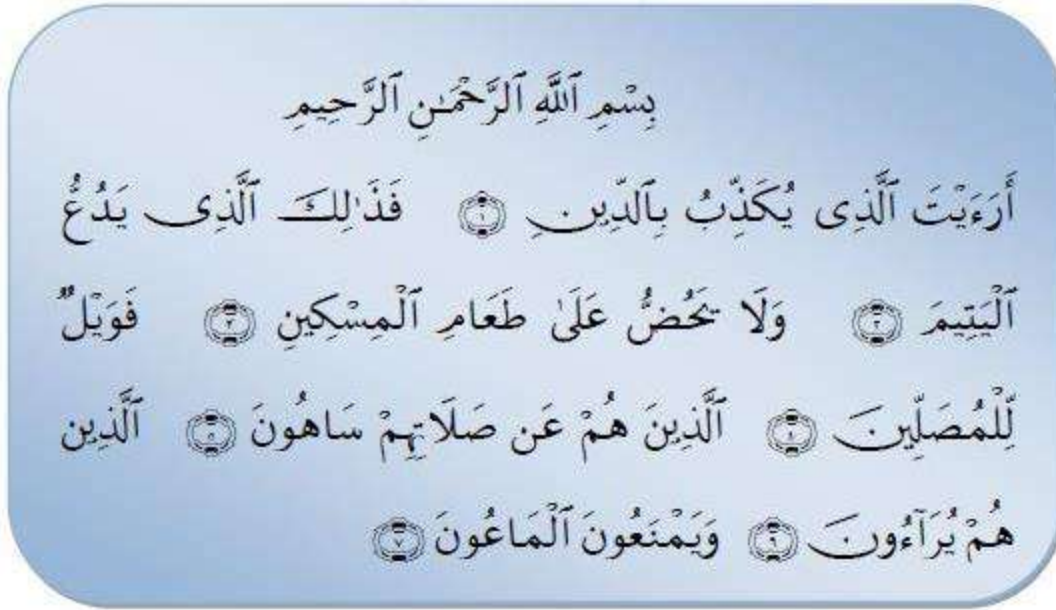 بِسْمِ ٱللَّهِ ٱلرَّحْمَـٰنِ ٱلرَّحِيمِ
أَرَءَيْتَ ٱلَّذِى يُكَذِّبُ بِٱلدِّينِ ١ فَذَٰلِكَ ٱلَّذِى يَدُعُّ
ٱلْيَتِيمَ ٢ وَلَا يَحُضُّ عَلَىٰ طَعَامِ ٱلْمِسْكِينِ ٣ فَوَيْلٌ
لِّلْمُصَلِّينَ ٤ ٱلَّذِينَ هُمْ عَن صَلَاتِهِمْ سَاهُونَ ٥ ٱلَّذِين
هُمْ يُرَآءُونَ ٦ وَيَمْنَعُونَ ٱلْمَاعُونَ ٧